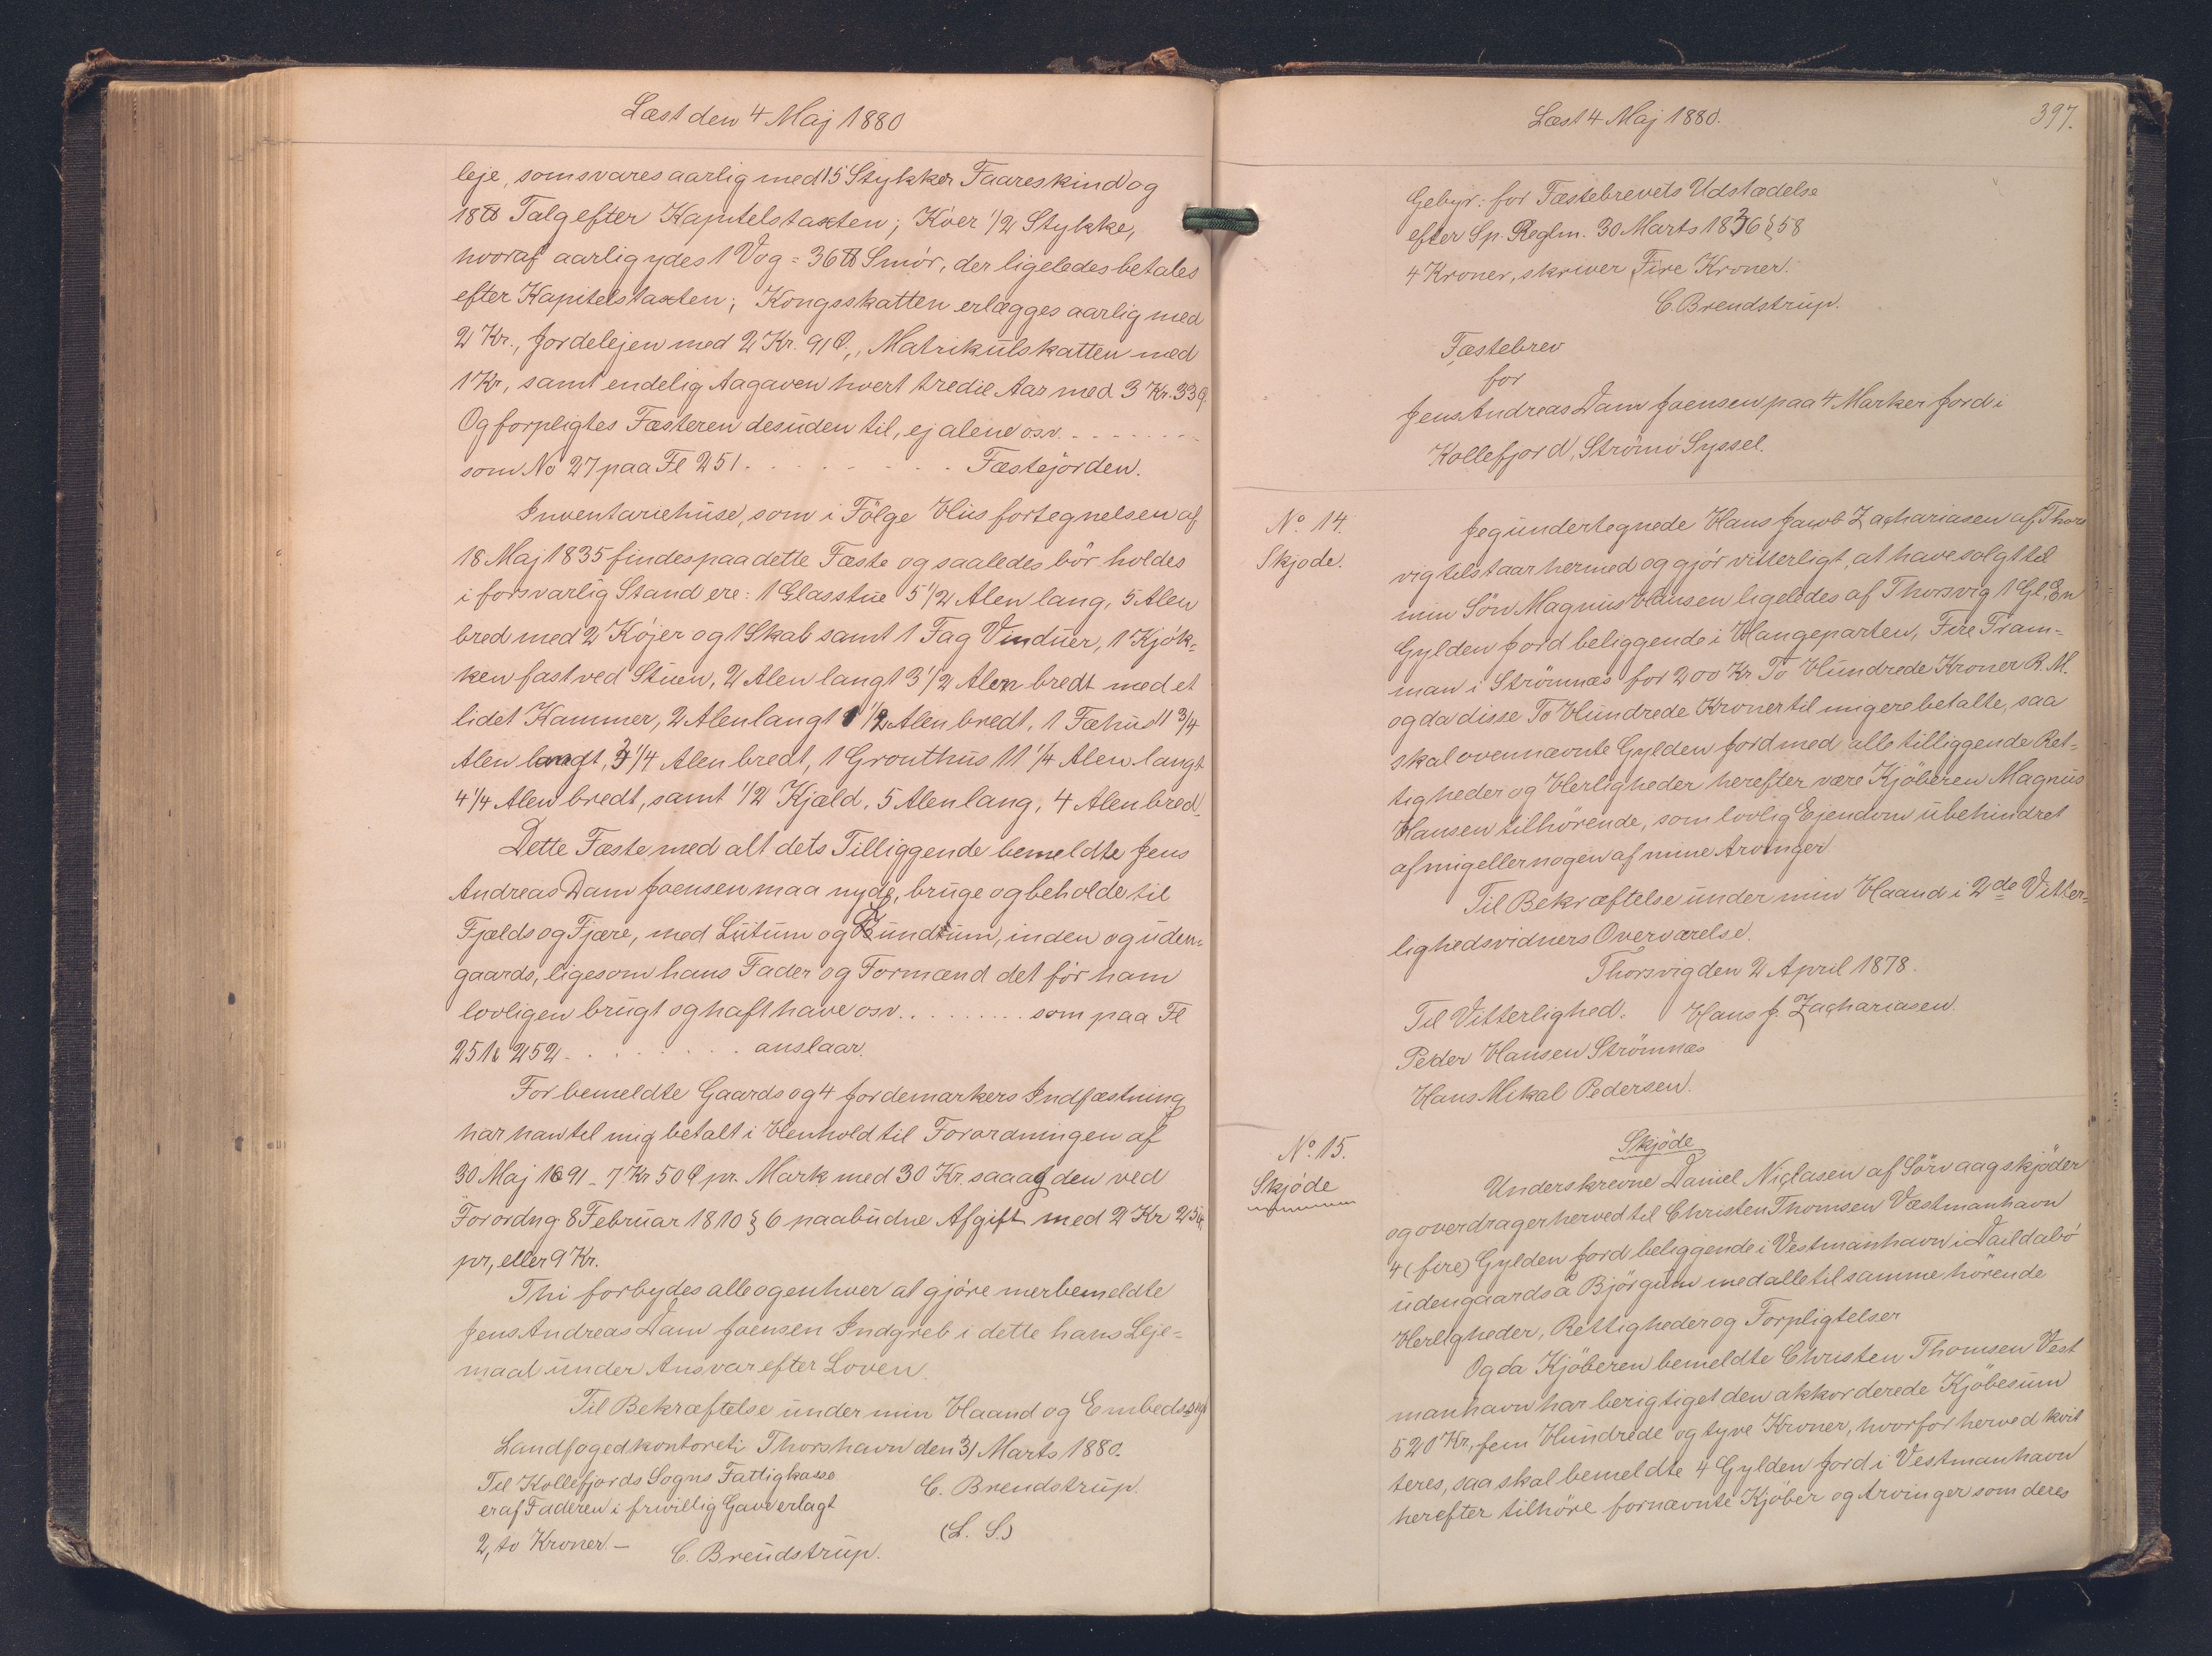 Læst den 4 Maj 1880
leje, som svares aarlig med 15 Stykker Faareskind og
18 ℔ Talg efter Kapitelstaxten; Köer 1/2 Stykke,
hvoraf aarlig ydes 1 Vog = 36 ℔ Smör, der ligeledes betales
efter Kapitelstaxten; Kongsskatten erlægges aarlig med
2 Kr., Jordelejen med 2 Kr. 91 Ø., Matrikulskatten med
1 Kr, samt endelig Aagaven hvert tredie Aar med 3 Kr. 33 Ø.
Og forpligtes Fæsteren desuden til, ej alene osv. . . . . . . .
som No 27 paa Fl 251. . . . . . . . . Fæstejorden.
Inventariehuse, som i Fölge Husfortegnelsen af
18 Maj 1835 findes paa dette Fæste og saaledes bör holdes
i forsvarlig Stand ere: 1 Glasstue 5 1/2 Alen lang, 5 Alen
bred med 2 Köjer og 1 Skab samt 1 Fag Vinduer, 1 Kjök-
ken fast ved Stuen, 2 Alen langt 3 1/2 Alen bredt med et
lidet Kammer, 2 Alen langt 1 1/2 Alen bredt, 1 Fæhus 11 3/4
Alen langt, 3 1/4 Alen bredt, 1 Grouthus 11 1/4 Alen langt
4 1/4 Alen bredt, samt 1/2 Kjæld, 5 Alen lang, 4 Alen bred.
Dette Fæste med alt dets Tilliggende bemeldte Jens
Andreas Dam Joensen maa nyde, bruge og beholde til
Fjelds og Fjære, med Lutum og Lundum, inden og uden-
gaards, ligesom hans Fader og Formænd det för ham
lovligen brugt og haft have osv. . . . . . . . . som paa Fl
251 & 252 . . . . . . . . anslaar.
For bemeldte Gaards og 4 Jordemarkers Indfæstning
har han til mig betalt i Henhold til Forordningen af
30 Maj 1691 - 7 Kr 50 Ø pr. Mark med 30 Kr. saa og den ved
Forordng. 8 Februar 1810 § 6 paabudne Afgift med 2 Kr 25 Ø
pr, eller 9 Kr.
Thi forbydes alle og enhver at gjöre merbemeldte
Jens Andreas Dam Joensen Indgreb i dette hans Leje-
maal under Ansvar efter Loven.
Til Bekræftelse under min Haand og Embedssegl
Landfogedkontoret i Thorshavn den 31 Marts 1880.
C. Brendstrup.
(L. S.)
Til Kollefjords Sogns Fattigkasse
er af Faderen i frivillig Gave erlagt
2, to Kroner. —
C. Brendstrup.
Læst 4 Maj 1880.
397.
Gebyr: for Fæstebrevets Udstædelse
efter Sp. Reglm. 30 Marts 1836 § 58
4 Kroner, skriver Fire Kroner.
C. Brendstrup.
Fæstebrev
for
Jens Andreas Dam Joensen paa 4 Marker Jord i
Kollefjord, Strömö Syssel.
No 14.
Skjöde.
Jeg undertegnede Hans Jacob Zachariasen af Thors
vig tilstaar hermed og gjör vitterligt, at have solgt til
min Sön Magnus Hansen ligeledes af Thorsvig 1 Gl. En
Gylden Jord beliggende i Hangeparten, Fire Fram-
man i Strömnæs for 200 Kr. To Hundrede Kroner R. M.
og da disse To Hundrede Kroner til mig ere betalte, saa
skal ovennævnte Gylden Jord med alle tilliggende Ret-
tigheder og Herligheder herefter være Kjöberen Magnus
Hansen tilhörende, som lovlig Ejendom ubehindret
af mig eller nogen af mine Arvinger.
Til Bekræftelse under min Haand i 2de Vitter-
lighedsvidners Overværelse.
Thorsvig den 2 April 1878.
Til Vitterlighed. Hans J. Zachariasen.
Peder Hansen Strömnæs
Hans Mikal Pedersen.
No 15.
Skjöde
Skjöde
Underskrevne Daniel Niclasen af Sörvaag skjöder
og overdrager herved til Christen Thomsen Vestmanhavn
4 (fire) Gylden Jord beliggende i Vestmanhavn i Daildabö
udengaards á Bjórgum med alle til samme hörende
Herligheder, Rettigheder og Forpligtelser
Og da Kjöberen bemeldte Christen Thomsen Vest
manhavn har berigtiget den akkorderede Kjöbesum
520 Kr, fem Hundrede og tyve Kroner, hvorfor herved kvit
teres, saa skal bemeldte 4 Gylden Jord i Vestmanhavn
herefter tilhöre fornævnte Kjöber og Arvinger som deres